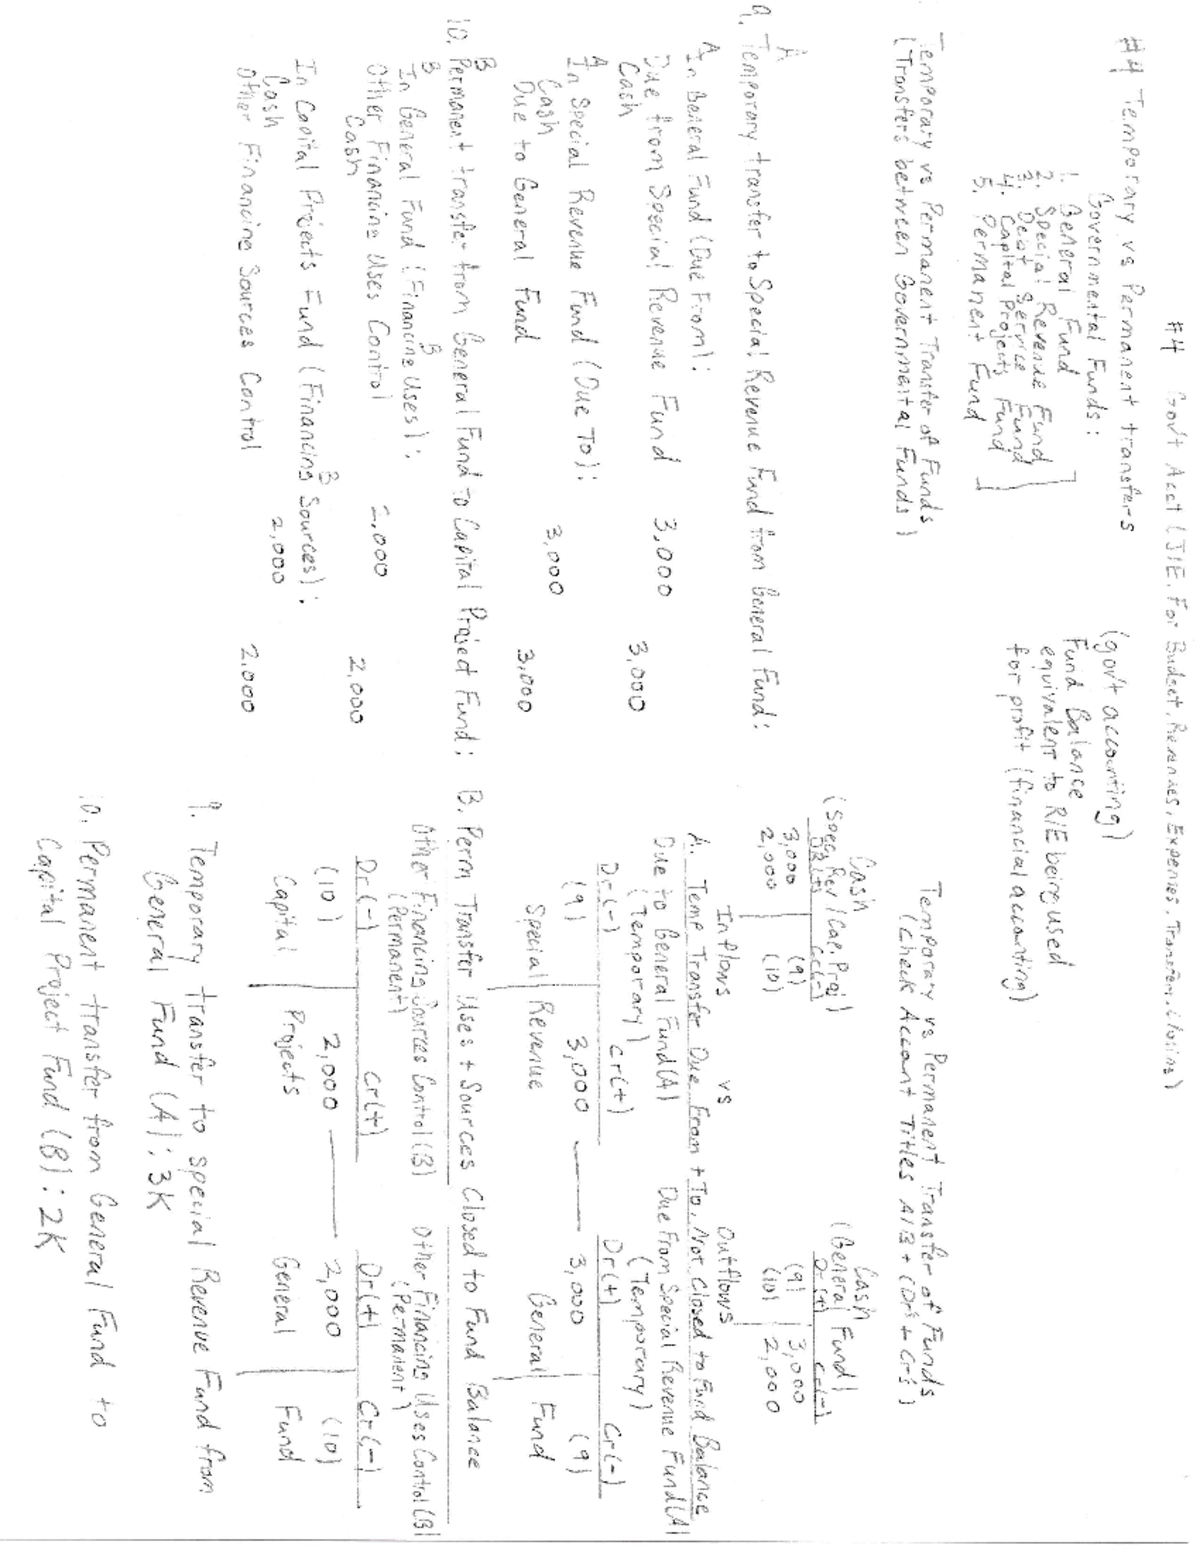 #4 Gov't Acct (J/E. For Budget, Revenues, Expenses, Transfers, Closing)
#4 Temporary vs Permanent transfers
Governmental Funds:
1. General Fund
2. Special Revenue Fund
3. Debt Service Fund
4. Capital Projects Fund
5. Permanent Fund
(gov't accounting)
Fund Balance
equivalent to R/E being used
for profit (financial accounting)
Temporary vs Permanent Transfer of Funds
(Transfers between Governmental Funds)
A
9. Temporary transfer to Special Revenue Fund from General Fund:
A
In General Fund (Due From):
Due from Special Revenue Fund 3,000
Cash 3,000
A
In Special Revenue Fund (Due To):
Cash 3,000
Due to General Fund 3,000
B
10. Permanent transfer from General Fund to Capital Project Fund:
B B
In General Fund (Financing Uses):
Other Financing Uses Control 2,000
Cash 2,000
B
In Capital Projects Fund (Financing Sources):
Cash 2,000
Other Financing Sources Control 2,000
Temporary vs Permanent Transfer of Funds
(Check Account Titles A/B + (Dr's + Cr's)
Cash Cash
(Spec. Rev/Cap. Proj) (General Fund)
Dr(+) Cr(-) Dr(+) Cr(-)
3,000 (9) (9) 3,000
2,000 (10) (10) 2,000
Inflows vs Outflows
A. Temp Transfer Due From + To, Not Closed to Fund Balance
Due to General Fund(A) Due From Special Revenue Fund(A)
(Temporary) (Temporary)
Dr(-) Cr(+) Dr(+) Cr(-)
(9) 3,000 3,000 (9)
Special Revenue General Fund
B. Perm Transfer Uses + Sources Closed to Fund Balance
Other Financing Sources Control(B) Other Financing Uses Control(B)
(Permanent) (Permanent)
Dr(-) Cr(+) Dr(+) Cr(-)
(10) 2,000 2,000 (10)
Capital Projects General Fund
9. Temporary transfer to special Revenue Fund from
General Fund (A): 3K
10. Permanent transfer from General Fund to
Capital Project Fund (B): 2K